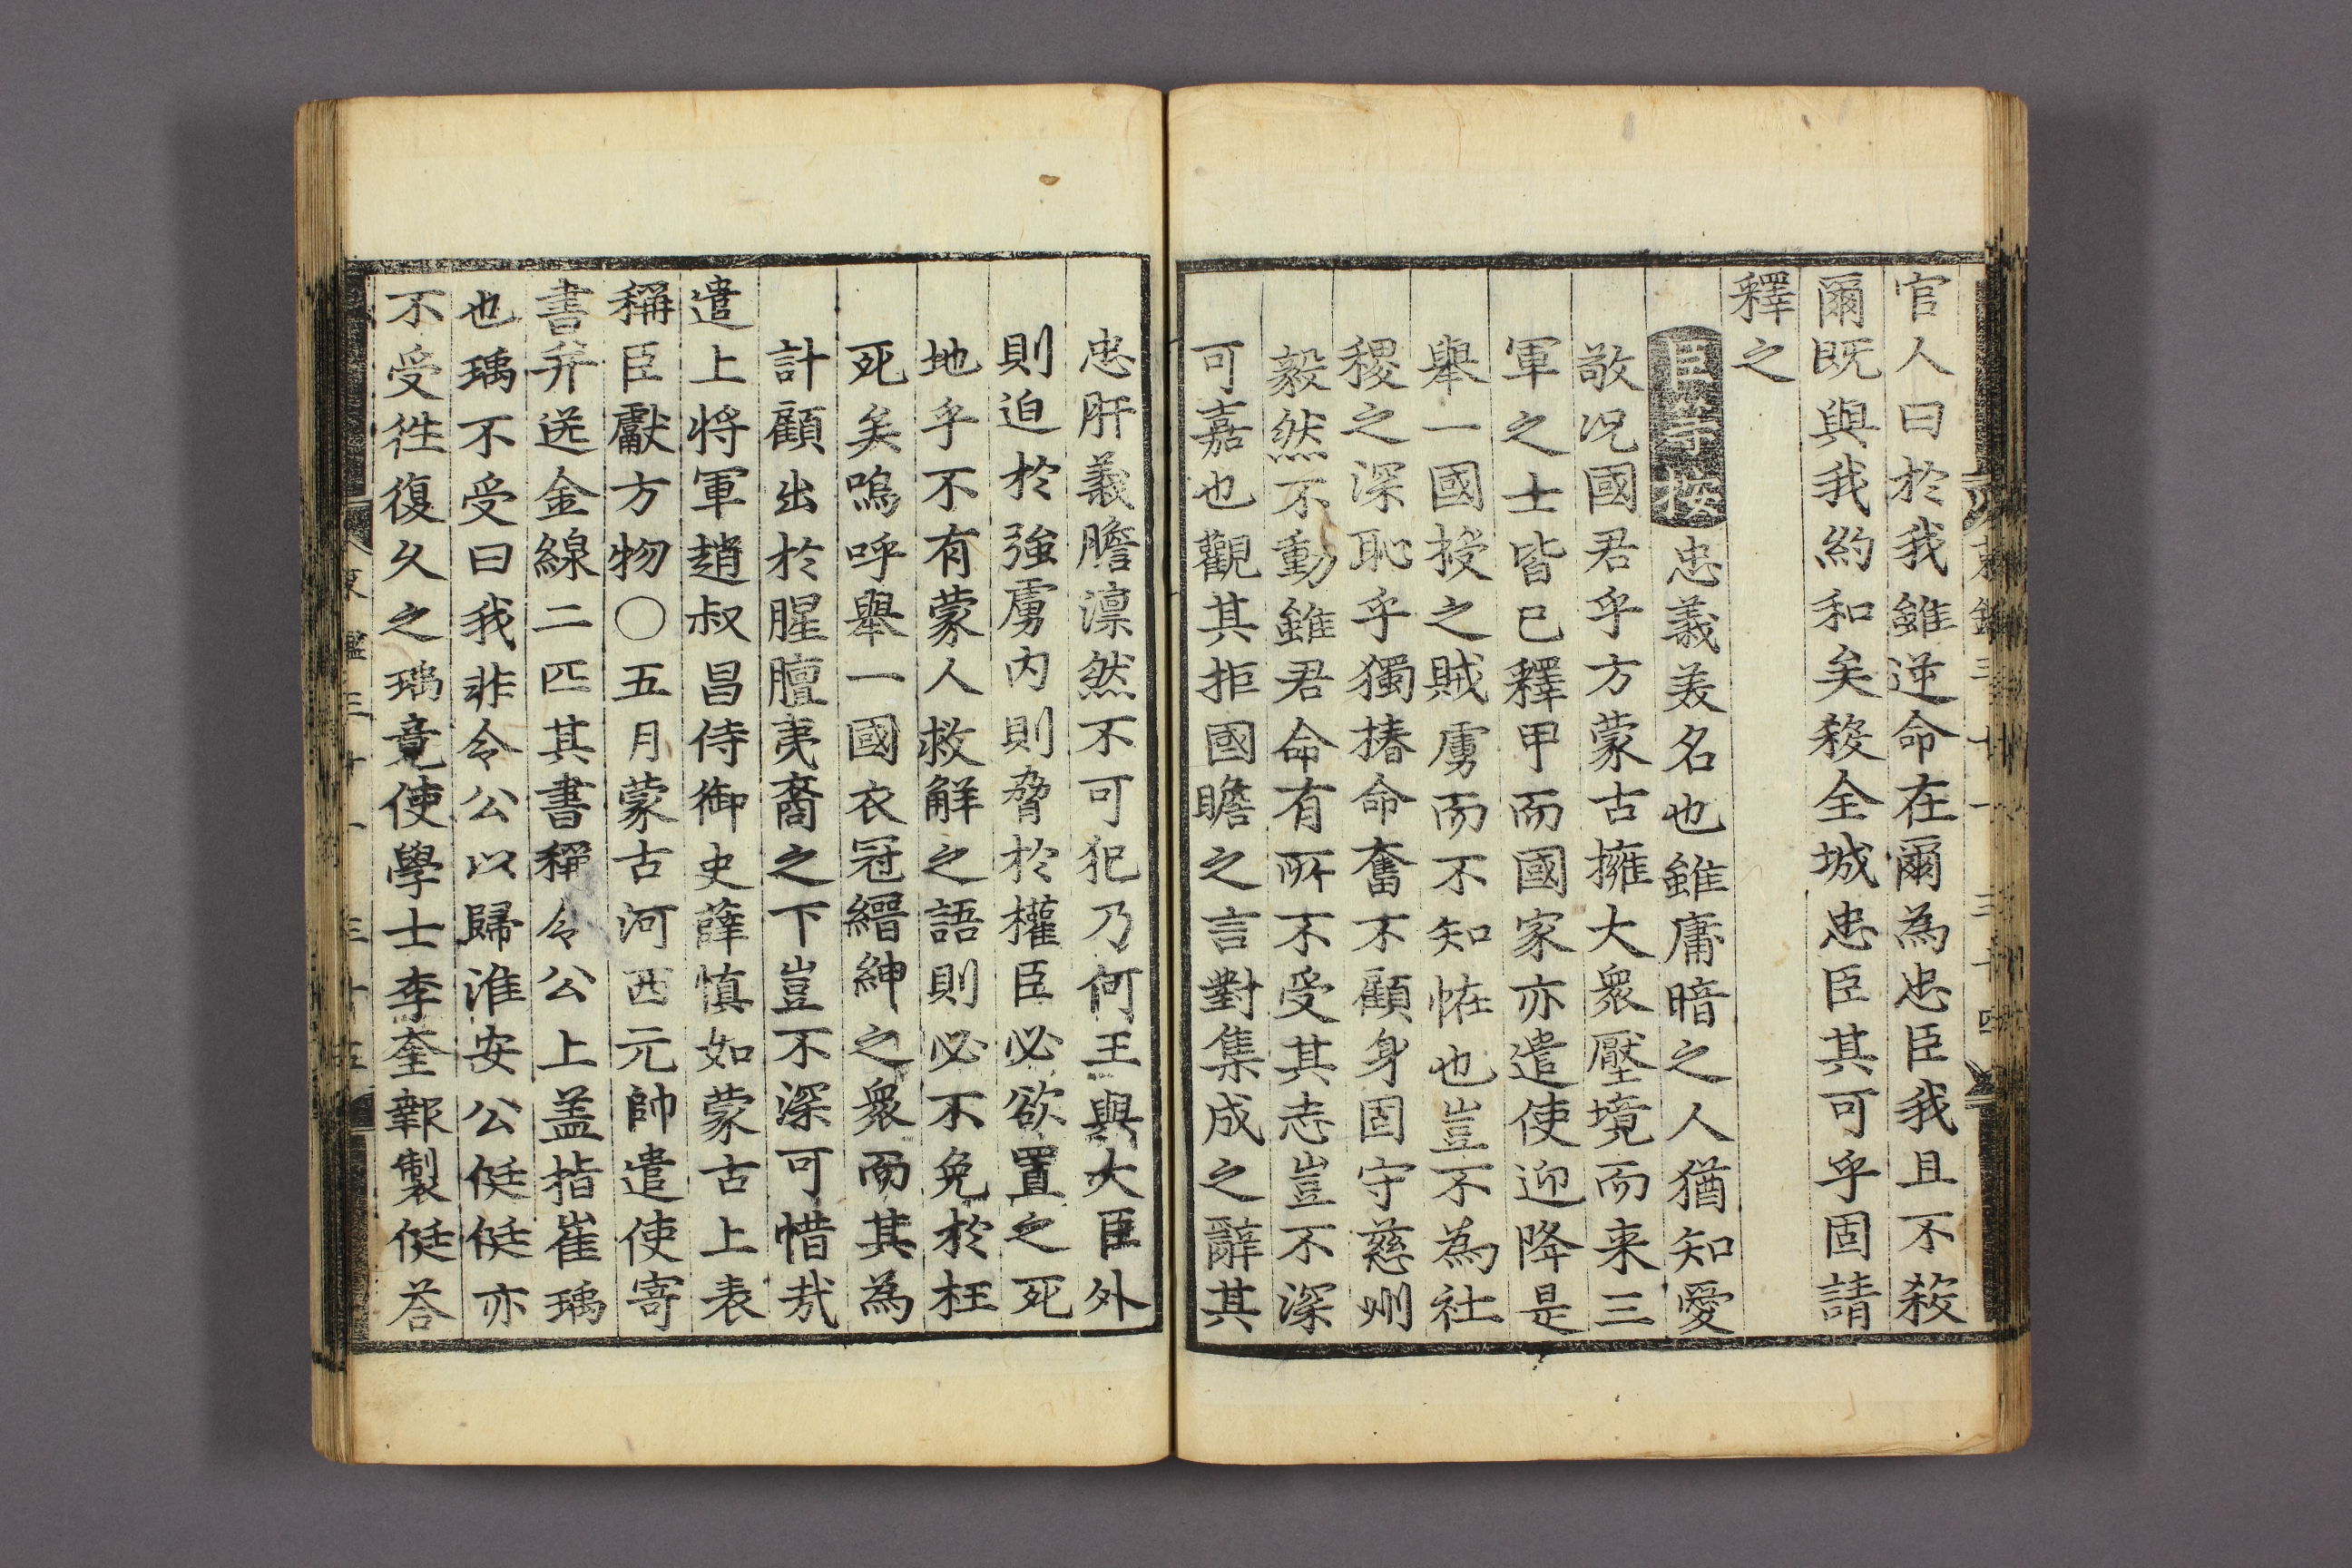 官人曰於我雖逆命在爾為忠臣我且不殺
爾既與我約和矣殺全城忠臣其可乎固請
釋之
臣等按忠義美名也雖庸暗之人猶知愛
敬况國君乎方蒙古擁大衆壓境而来三
軍之士皆已釋甲而國家亦遣使迎降是
舉一國授之賊虜而不知恠也豈不為社
稷之深恥乎獨椿命奮不顧身固守慈州
毅然不動雖君命有所不受其志豈不深
可嘉也觀其拒國瞻之言對集成之辭其
忠肝義膽凛然不可犯乃何王與大臣外
則迫於強虜内則脅於權臣必欲置之死
地乎不有蒙人救解之語則必不免於枉
死矣嗚呼舉一國衣冠縉紳之衆而其為
計顧出於腥膻夷裔之下豈不深可惜哉
遣上将軍趙叔昌侍御史薛慎如蒙古上表
稱臣獻方物〇五月蒙古河西元帥遣使寄
書并送金線二匹其書稱令公上盖指崔瑀
也瑀不受曰我非令公以歸淮安公侹侹亦
不受徃復久之瑀竟使學士李奎報製侹荅
東鑑三十一 三十五